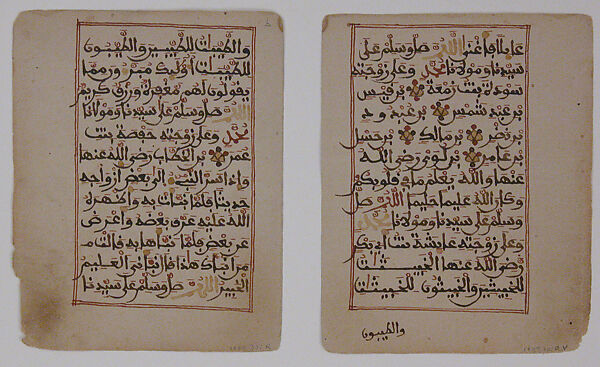 اللهم صل وسلم على
سيدنا ومولانا محمد وعلى زوجته
سودة بنت زمعة بن قيس
بن عبد شمس بن عبد ود
بن نصر بن مالك بن حسل
بن عامر بن لوي رضي الله
عنها والله يعلم ما في قلوبكم
وكان الله عليما حليما اللهم صل
وسلم على سيدنا ومولانا محمد
وعلى زوجته عايشة بنت ابي بكر
رضي الله عنها الخبيثات
للخبيثين والخبيثون للخبيثات
والطيبون
والطيبات للطيبين والطيبون
للطيبات أوليك مبرءون مما
يقولون لهم مغفرة ورزق كريم
اللهم صل وسلم على سيدنا ومولانا
محمد وعلى زوجته حفصة بنت
عمر بن الخطاب رضي الله عنها
واذ اسر النبي الى بعض ازواجه
حديثا فلما نبات به واظهره
الله عليه عرف بعضه واعرض
عن بعض فلما نباها به قالت
من انباك هذا قال نباني العليم
الخبير اللهم صل وسلم على سيدنا